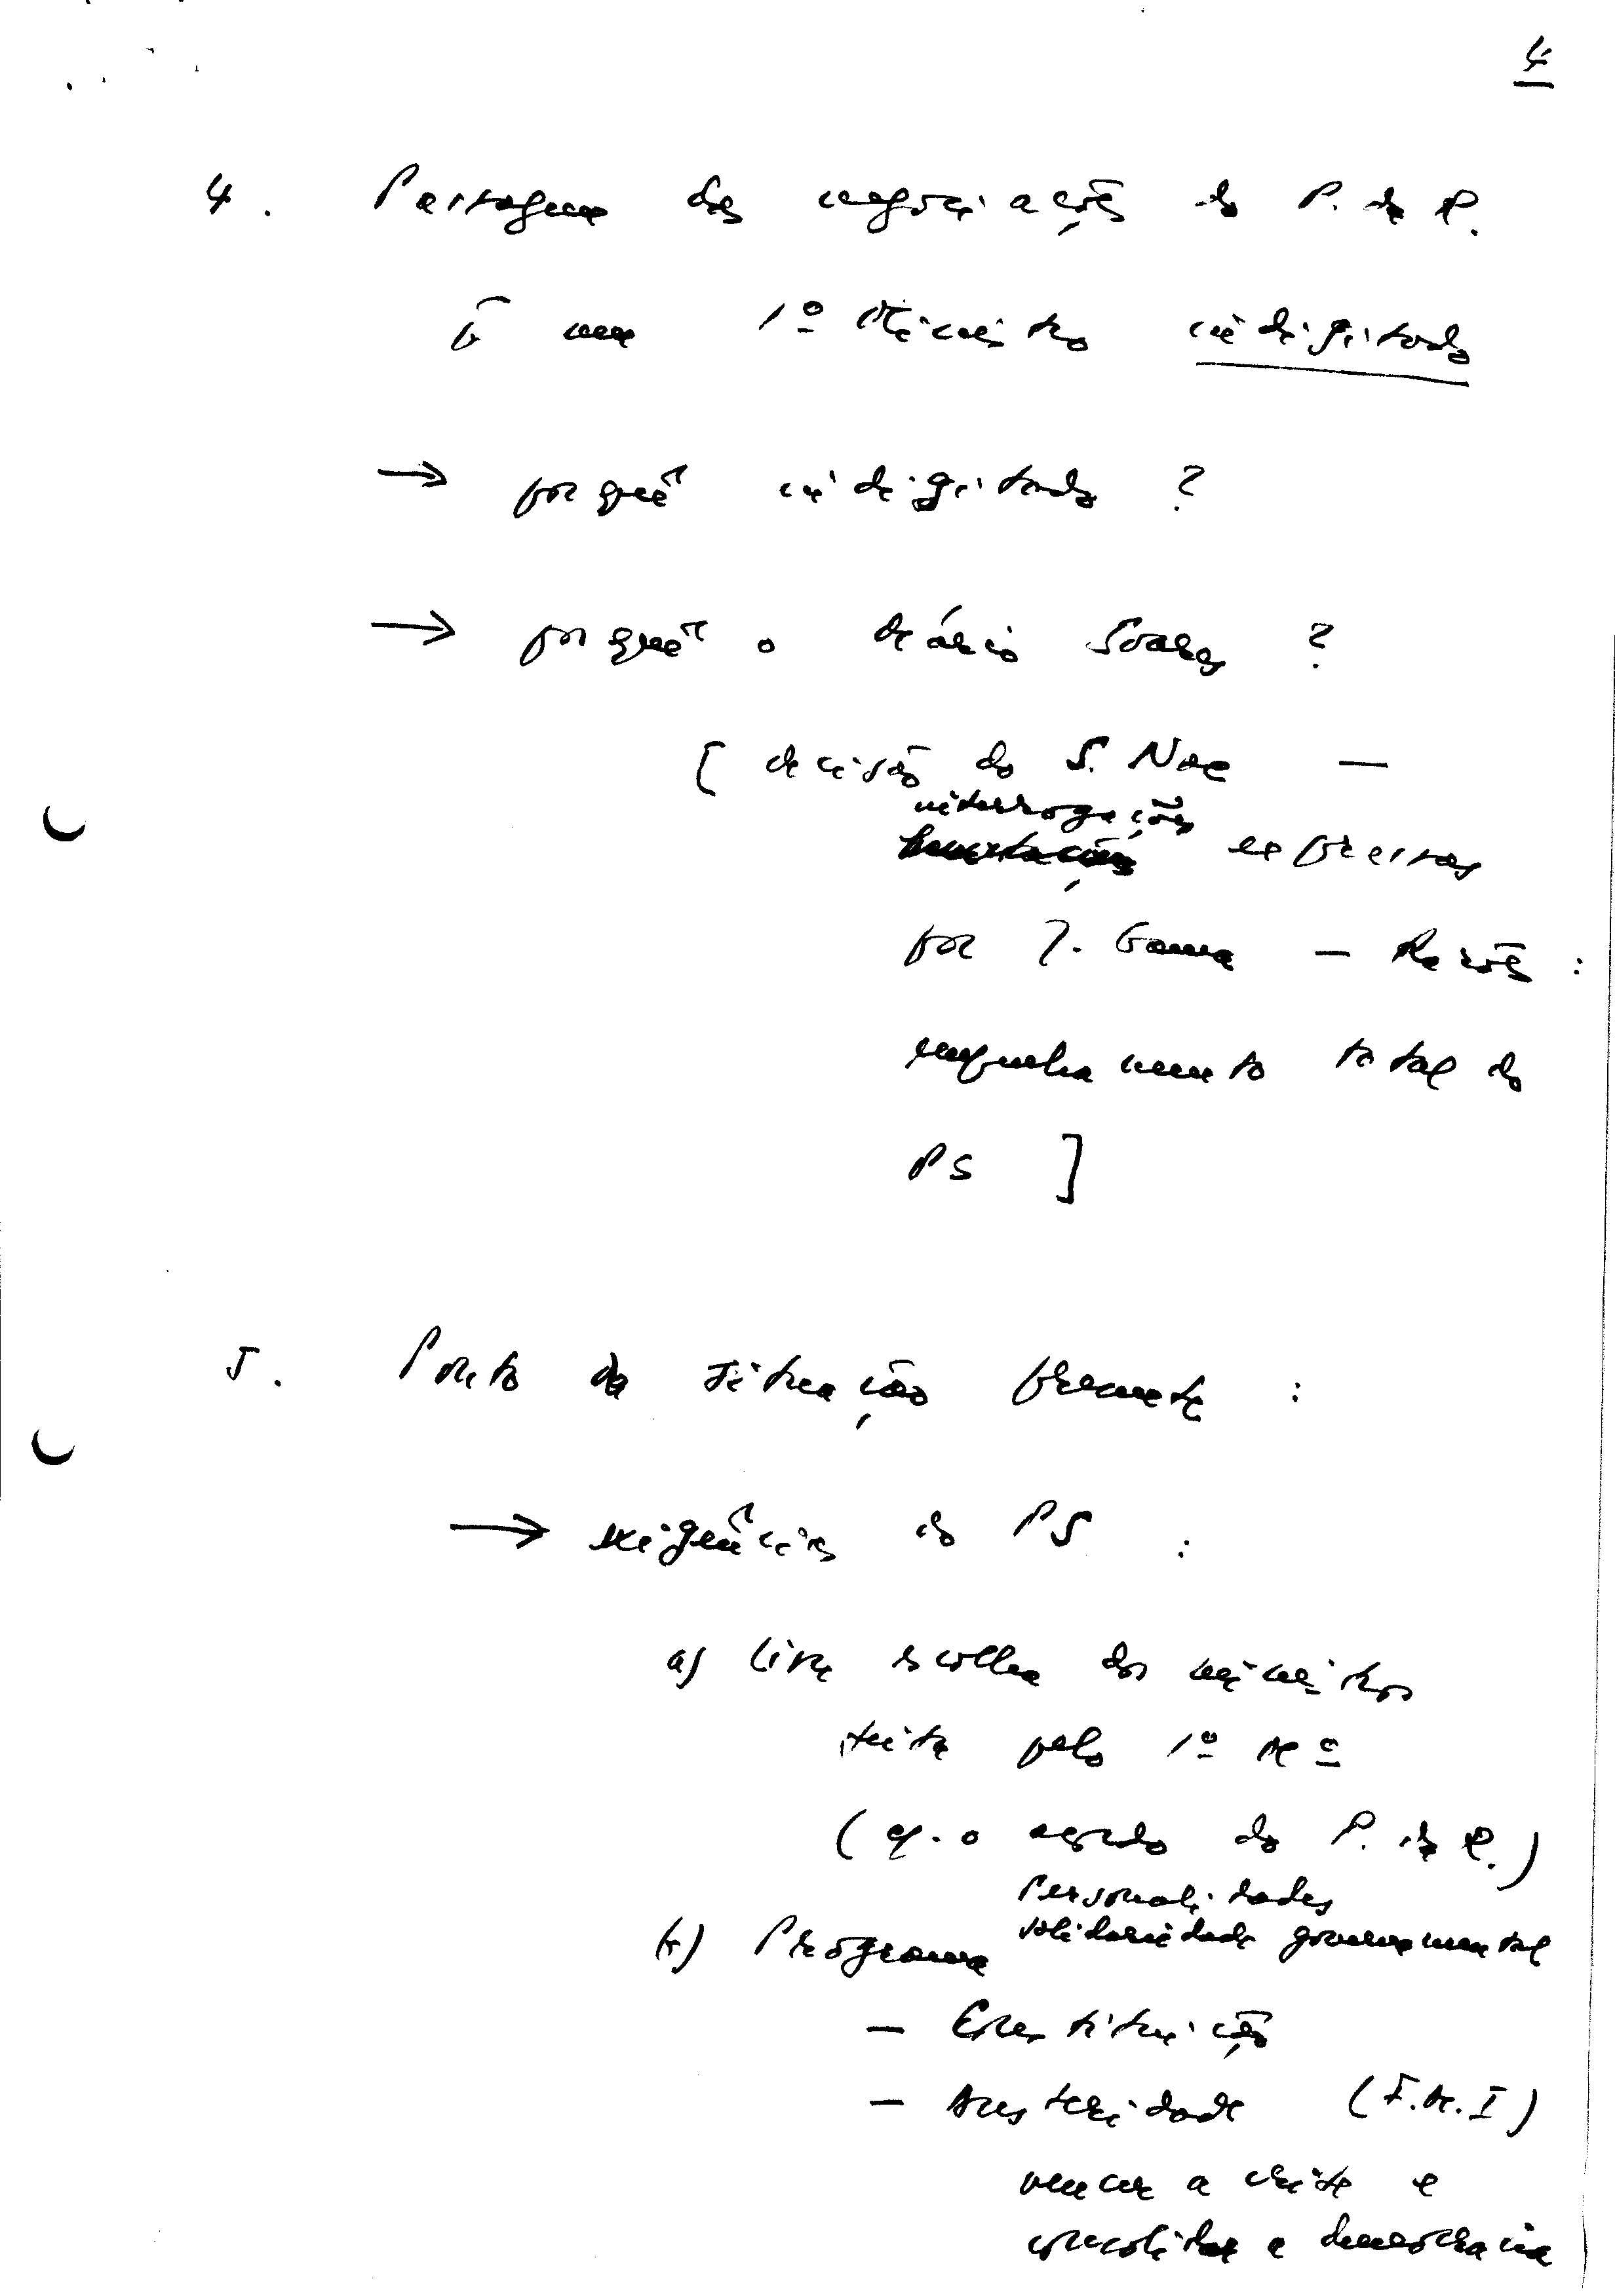 4
4. Passagem das negociações do P. da R.
a um 1º Ministro indigitado
→ porquê indigitado ?
→ porquê o Mário Soares ?
[ decisão do S. Nac —
interrogações expressas
por J. Gama — Razões :
empenhamento total do
PS ]
5. Ponto da situação presente :
→ exigências do PS :
a) livre escolha dos ministros
feita pelo 1º Mº
(c/. o acordo do P. da R.)
Personalidades
solidariedade governamental
b) Programa
— Constituição
— Austeridade (F.M.I)
vencer a crise e
consolidar a democracia